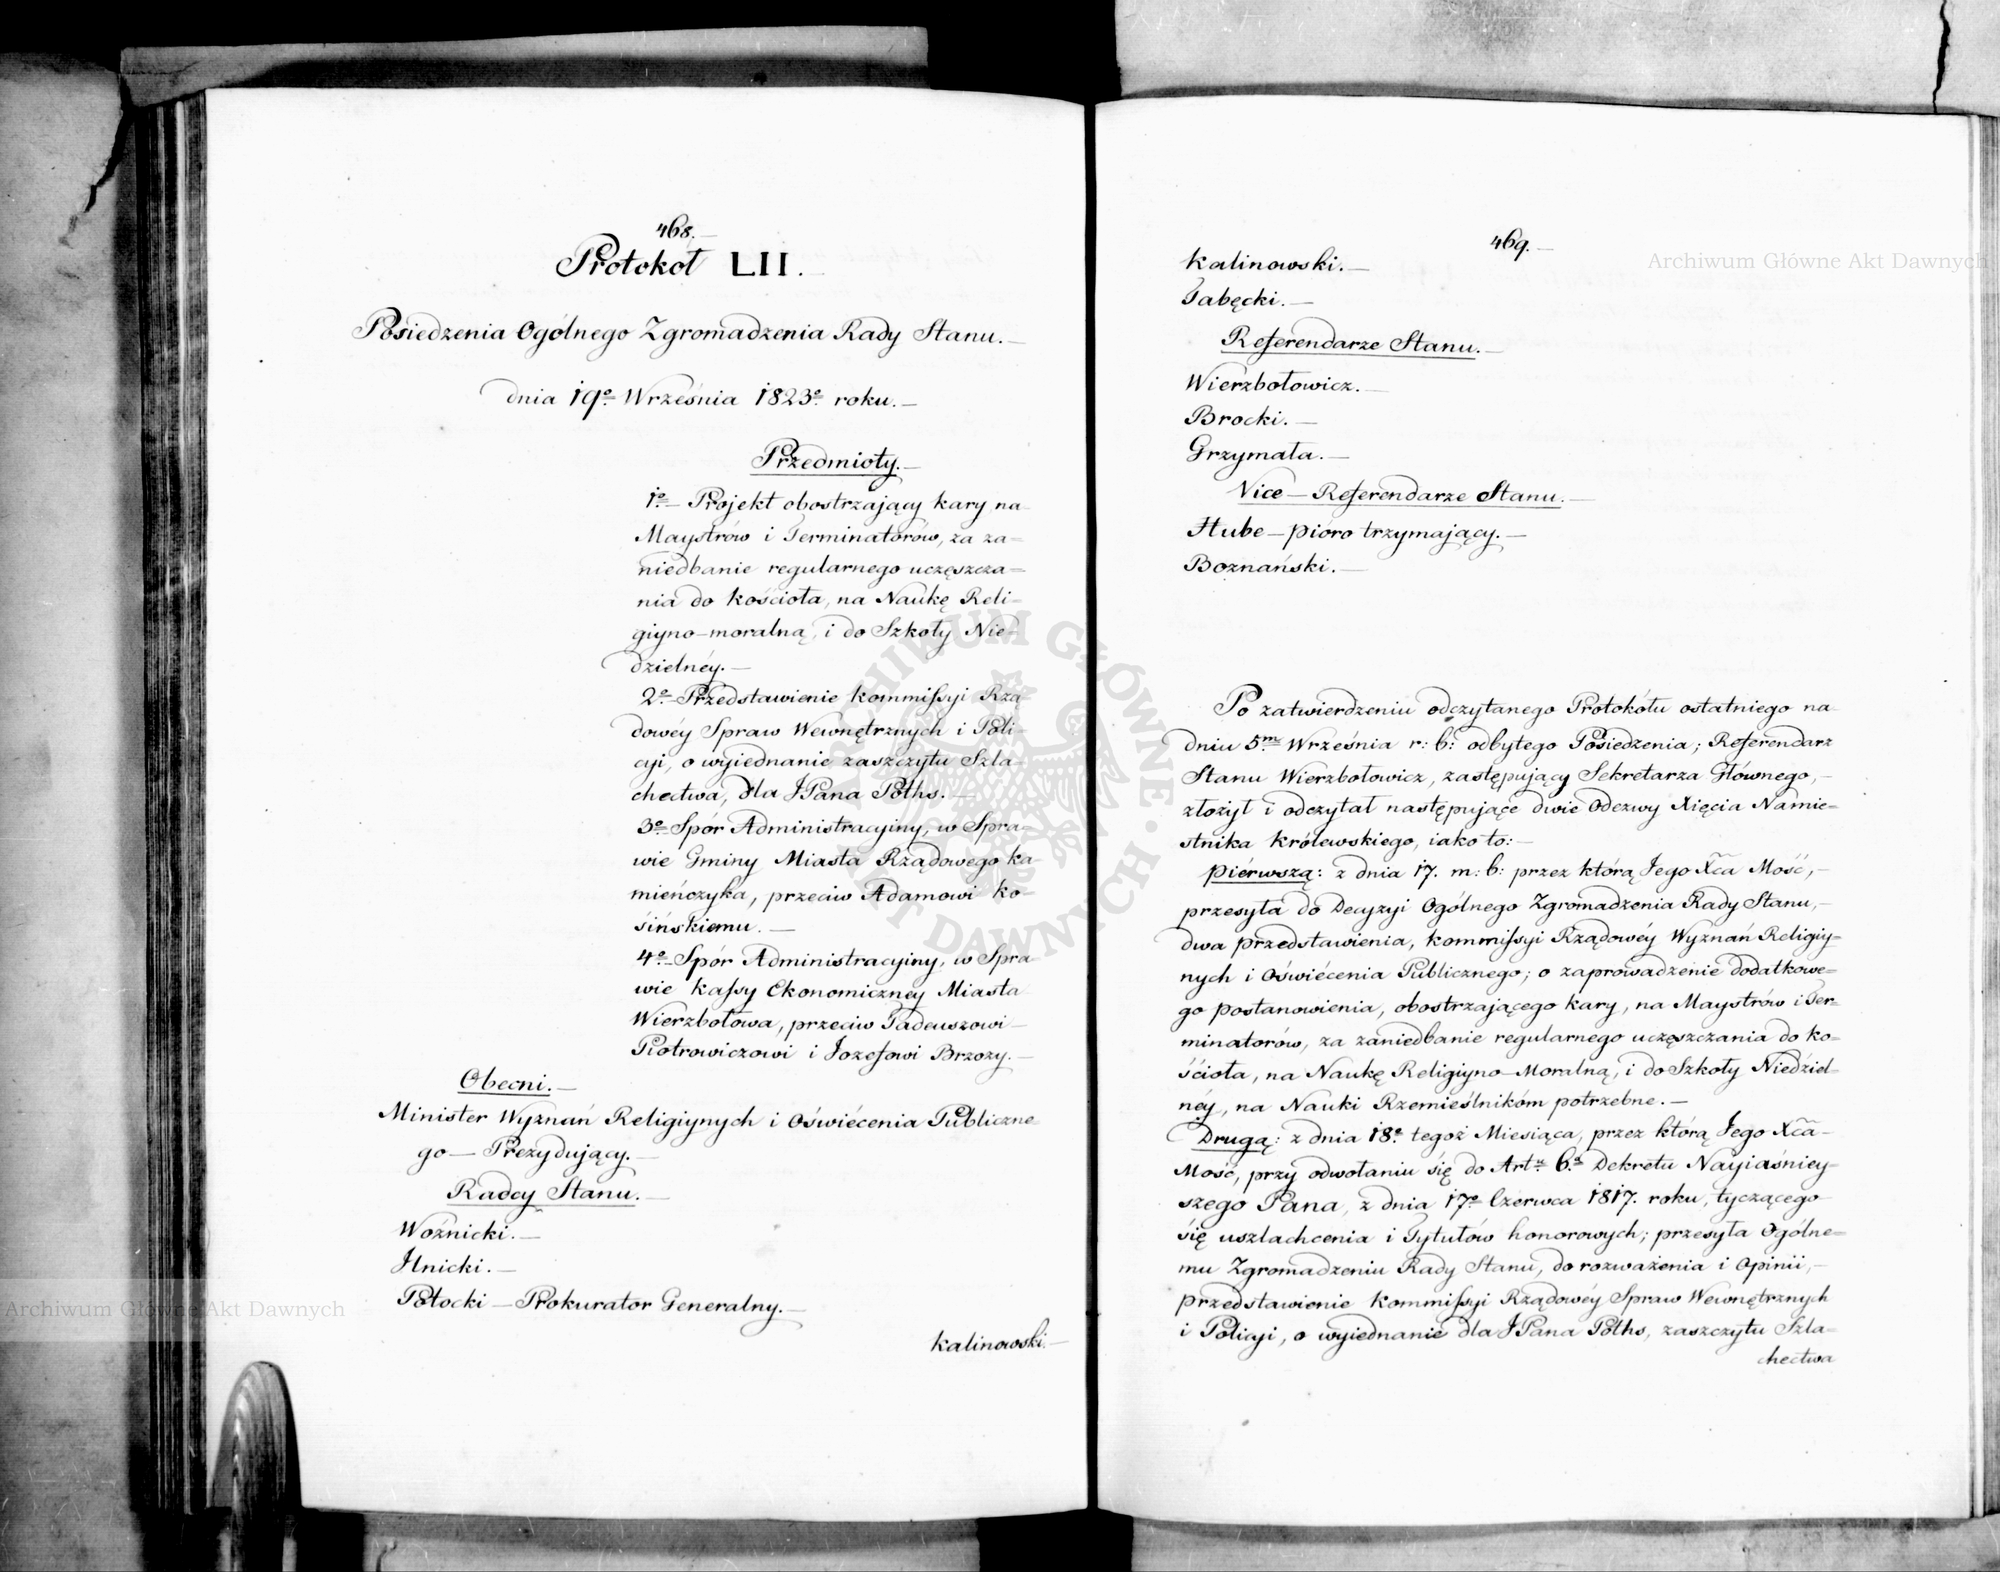 468.
Protokoł LII.
Posiedzenia Ogólnego Zgromadzenia Rady Stanu.
dnia 19º Września 1823º roku.
Przedmioty.
1º Projekt obostrzaiący kary na
Maystrów i Terminatorów, za za=
niedbanie regularnego uczęszcza=
nia do kościoła, na Naukę Reli=
giyno-moralną, i do Szkoły Nie=
dzielnéy.
2º Przedstawienie Kommissyi Rzą
dowéy Spraw Wewnętrznych i Poli=
cyi, o wyiednanie zaszczytu Szla=
chectwa, dla JPana Poths.
3º Spór Administracyiny, w Spra=
wie Gminy Miasta Rządowego Ka=
mieńczyka, przeciw Adamowi Ko=
sińskiemu.
4º Spór Administracyiny, w Spra
wie Kassy Ekonomiczney Miasta
Wierzbołowa, przeciw Tadeuszowi
Piotrowiczowi i Jozefowi Brzozy.
Obecni.
Minister Wyznań Religiynych i Oświécenia Publiczne=
go — Prezyduiący.
Radcy Stanu.
Woźnicki.
Ilnicki.
Potocki — Prokurator Generalny.
Kalinowski.
469.
Kalinowski.
Tabęcki.
Referendarze Stanu.
Wierzbołowicz.
Brocki.
Grzymała.
Vice — Referendarze Stanu.
Hube — pióro trzymaiący.
Boznański.
Po zatwierdzeniu odczytanego Protokółu ostatniego na
dniu 5m Września r: b: odbytego Posiedzenia; Referendarz
Stanu Wierzbołowicz, zastępuiący Sekretarza Głównego,
złożył i odczytał następuiące dwie Odezwy Xięcia Namie=
stnika Królewskiego, iako to:
piérwszą: z dnia 17. m: b: przez którą Jego Xca Mość,
przesyła do Decyzyi Ogólnego Zgromadzenia Rady Stanu,
dwa przedstawienia, Kommissyi Rządowéy Wyznań Religiy=
nych i Oświécenia Publicznego; o zaprowadzenie dodatkowe=
go postanowienia, obostrzaiącego kary, na Maystrów i Ter=
minatorów, za zaniedbanie regularnego uczęszczania do ko=
ścioła, na Naukę Religiyno-Moralną, i do Szkoły Niedziel=
néy, na Nauki Rzemieślnikóm potrzebne.
Drugą: z dnia 18º tegoż Miesiąca, przez którą Jego Xca
Mość, przy odwołaniu się do Artu 6º Dekretu Nayiaśniey=
szego Pana, z dnia 17º Czerwca 1817. roku, tyczącego
się uszlachcenia i Tytułów honorowych; przesyła Ogólne=
mu Zgromadzeniu Rady Stanu, do rozważenia i Opinii,
przedstawienie Kommissyi Rządowéy Spraw Wewnętrznych
i Policyi, o wyiednanie dla JPana Poths, zaszczytu Szla=
chectwa
Archiwum Główne Akt Dawnych
Archiwum Główne Akt Dawnych
ARCHIWUM GŁÓWNE AKT DAWNYCH